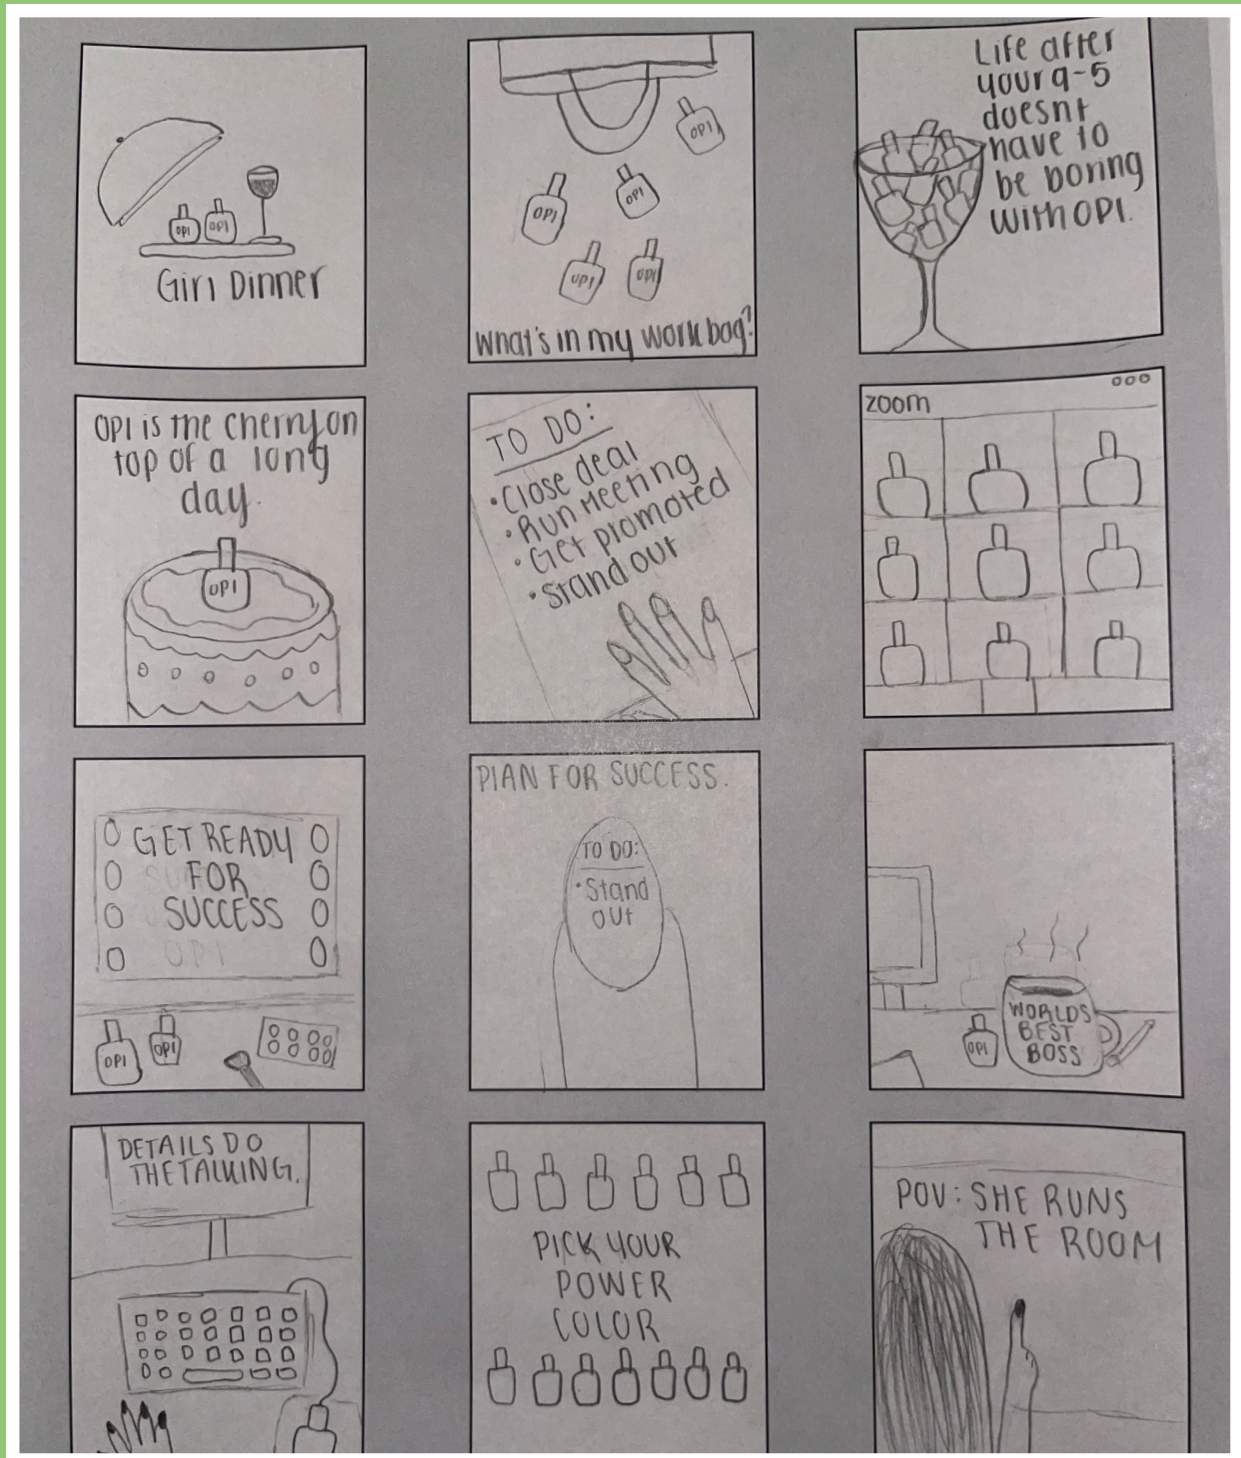 Girl Dinner
OPI
OPI
OPI
OPI
OPI
OPI
OPI
What's in my work bag?
Life after
your 9-5
doesnt
have to
be boring
with OPI.
OPI is the cherry on
top of a long
day.
OPI
TO DO:
•Close deal
•Run Meeting
•Get promoted
•Stand out
zoom
GET READY
FOR
SUCCESS
OPI
OPI
OPI
PLAN FOR SUCCESS.
TO DO:
•Stand
out
WORLDS
BEST
BOSS
OPI
DETAILS DO
THE TALKING.
PICK YOUR
POWER
COLOR
POV: SHE RUNS
THE ROOM